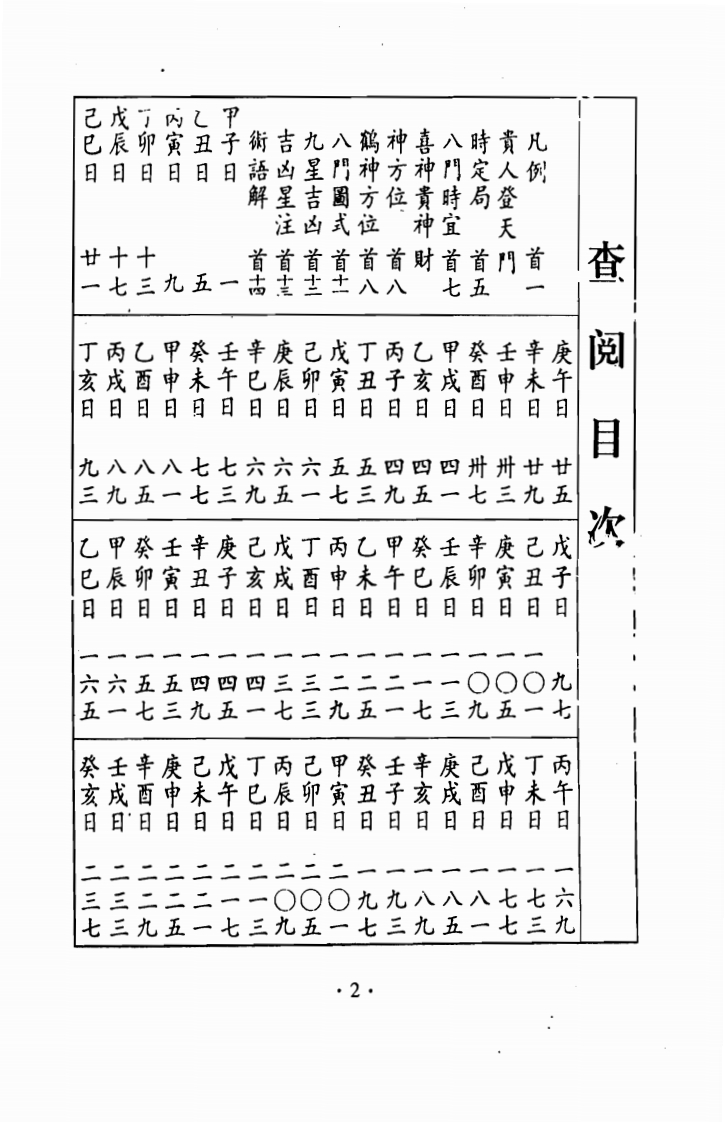 查閱目次
凡例 首一
貴人登天門
時定局 首五
八門時宜 首七
喜神貴神財
神方位 首八
鶴神方位 首八
八門圖式 首十一
九星吉凶 首十二
吉凶星注 首十三
術語解 首十四
甲子日 一
乙丑日 五
丙寅日 九
丁卯日 十三
戊辰日 十七
己巳日 廿一
庚午日 廿五
辛未日 廿九
壬申日 卅三
癸酉日 卅七
甲戌日 四一
乙亥日 四五
丙子日 四九
丁丑日 五三
戊寅日 五七
己卯日 六一
庚辰日 六五
辛巳日 六九
壬午日 七三
癸未日 七七
甲申日 八一
乙酉日 八五
丙戌日 八九
丁亥日 九三
戊子日 九七
己丑日 一〇一
庚寅日 一〇五
辛卯日 一〇九
壬辰日 一一三
癸巳日 一一七
甲午日 一二一
乙未日 一二五
丙申日 一二九
丁酉日 一三三
戊戌日 一三七
己亥日 一四一
庚子日 一四五
辛丑日 一四九
壬寅日 一五三
癸卯日 一五七
甲辰日 一六一
乙巳日 一六五
丙午日 一六九
丁未日 一七三
戊申日 一七七
己酉日 一八一
庚戌日 一八五
辛亥日 一八九
壬子日 一九三
癸丑日 一九七
甲寅日 二〇一
己卯日 二〇五
丙辰日 二〇九
丁巳日 二一三
戊午日 二一七
己未日 二二一
庚申日 二二五
辛酉日 二二九
壬戌日 二三三
癸亥日 二三七
·2·